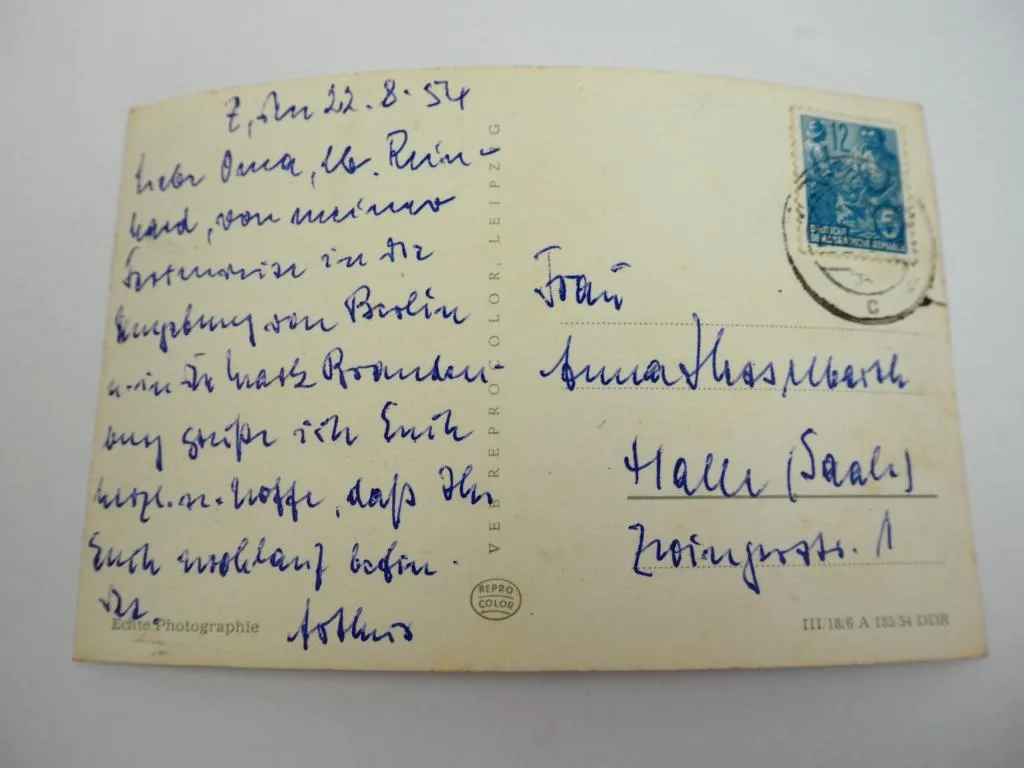 Z, den 22.8.54
Liebe Oma, lb. Rein-
hard, von meiner
Ferienreise in die
Umgebung von Berlin
u. in die Mark Branden-
burg grüße ich Euch
herzl. u. hoffe, daß Ihr
Euch wohlauf befin-
det.
Arthur
VEB REPROCOLOR, LEIPZIG
REPRO
COLOR
Echte Photographie
12
5
DEUTSCHE
DEMOKRATISCHE REPUBLIK
C
Frau
Anna
Halle (Saale)
Zwingerstr. 1
III/18/6 A 185/54 DDR